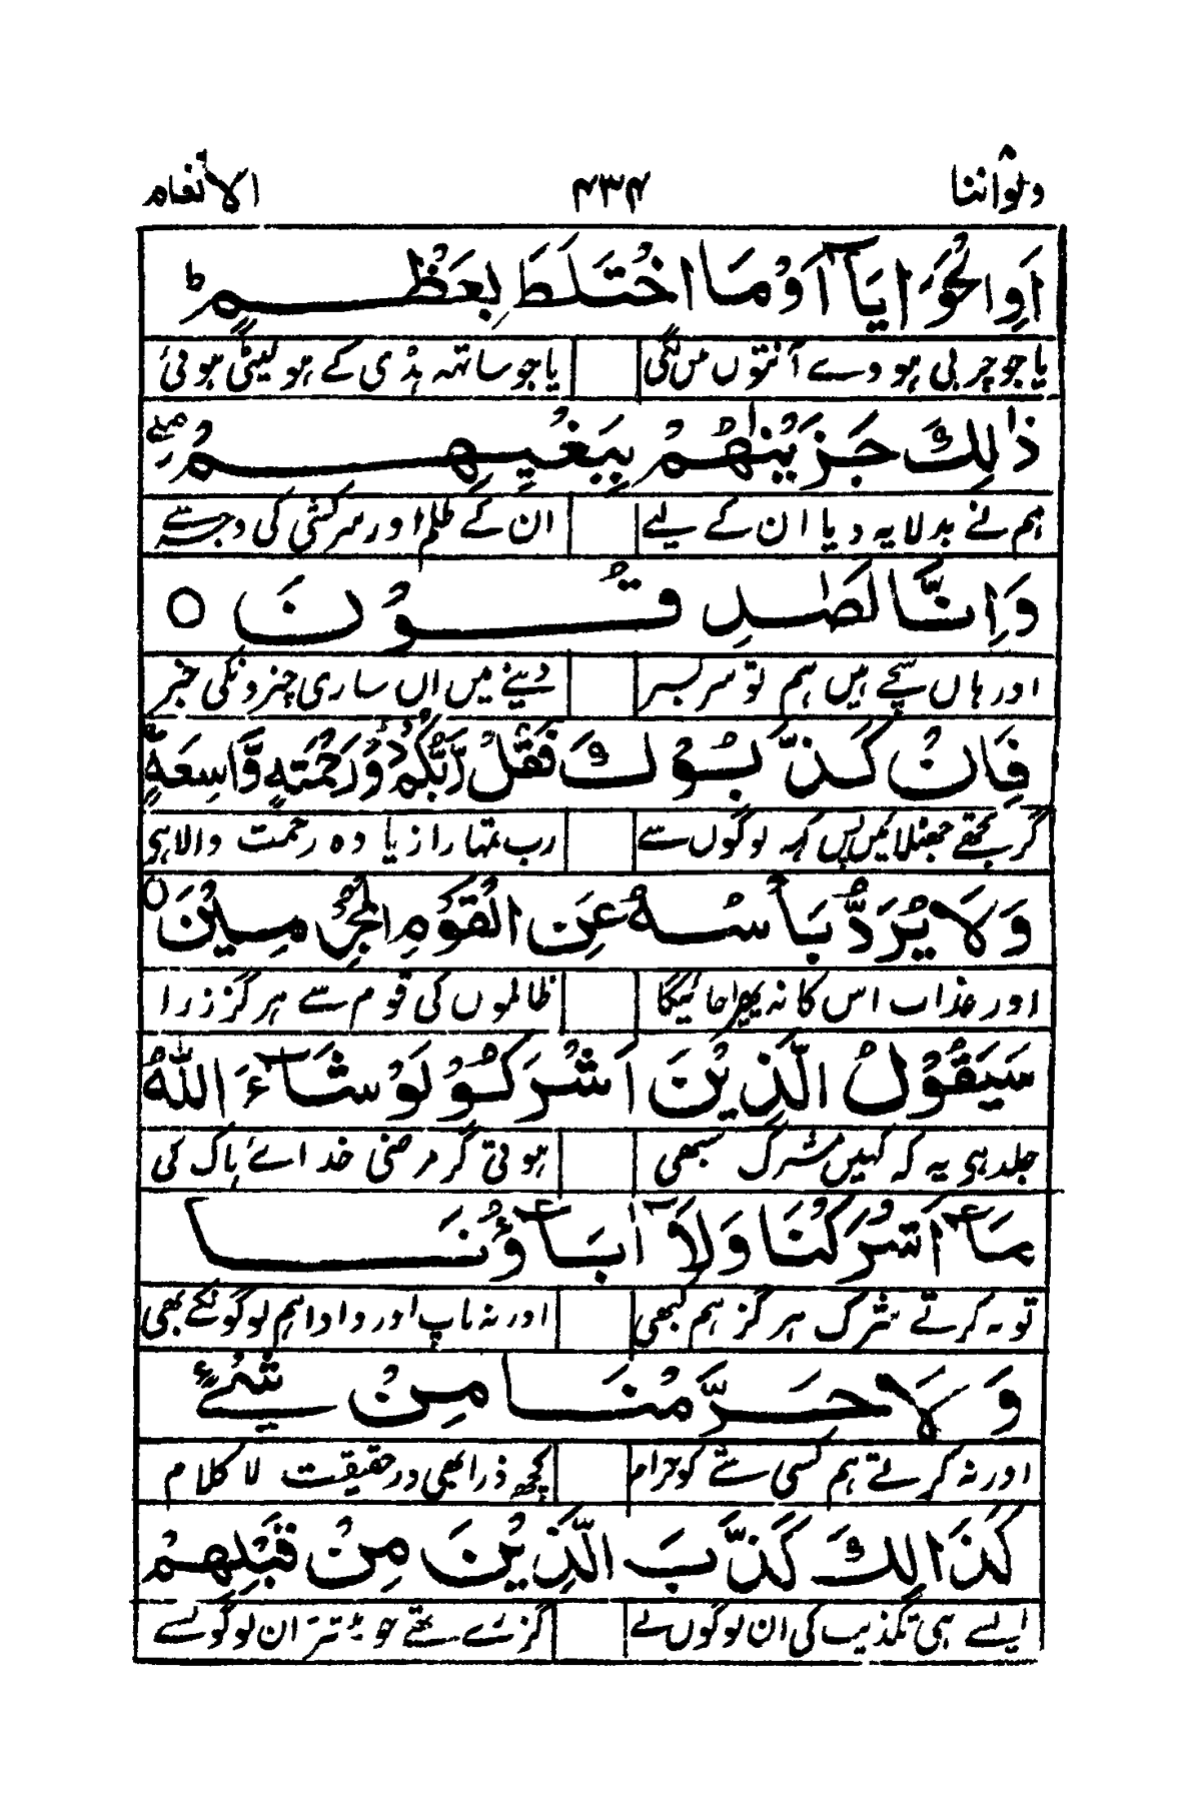 ولواننا ۴۳۴ الانعام
اَوِالْحَوَايَآ اَوْ مَا اخْتَلَطَ بِعَظْمٍ ط
یا جو چربی ہووے آنتوں میں لگی یا جو ساتھ ہڈی کے ہو لپٹی ہوئی
ذٰلِكَ جَزَيْنٰهُمْ بِبَغْيِهِمْ
ہم نے بدلا یہ دیا ان کے لیے ان کے ظلم اور سرکشی کی وجہ سے
وَاِنَّا لَصٰدِقُوْنَ ○
اور ہاں سچے ہیں ہم تو سر بسر دینے میں اں ساری چیزونکی خبر
فَاِنْ كَذَّبُوْكَ فَقُلْ رَّبُّكُمْ ذُوْ رَحْمَتِهٖ وَّاسِعَةٍ
گر تجھے جھٹلائیں پس کہہ لوگوں سے رب تمہارا زیادہ رحمت والا ہی
وَلَا يُرَدُّ بَأْسُهٗ عَنِ الْقَوْمِ الْمُجْرِمِيْنَ ○
اور عذاب اس کا نہ پھیرا جائیگا ظالموں کی قوم سے ہرگز ذرا
سَيَقُوْلُ الَّذِيْنَ اَشْرَكُوْ لَوْ شَآءَ اللّٰهُ
جلد ہی یہ کہ کہیں مشرک سبھی ہوتی گر مرضی خدائے پاک کی
مَآ اَشْرَكْنَا وَلَآ اٰبَآؤُنَا
تو نہ کرتے شرک ہرگز ہم کبھی اور نہ باپ اور دادا ہم لوگونکے بھی
وَلَا حَرَّمْنَا مِنْ شَيْءٍ
اور نہ کرتے ہم کسی شے کو حرام کچھ ذرا بھی درحقیقت لا کلام
كَذَالِكَ كَذَّبَ الَّذِيْنَ مِنْ قَبْلِهِمْ
ایسے ہی تکذیب کی ان لوگوں نے گزرے تھے جو ان لوگو سے